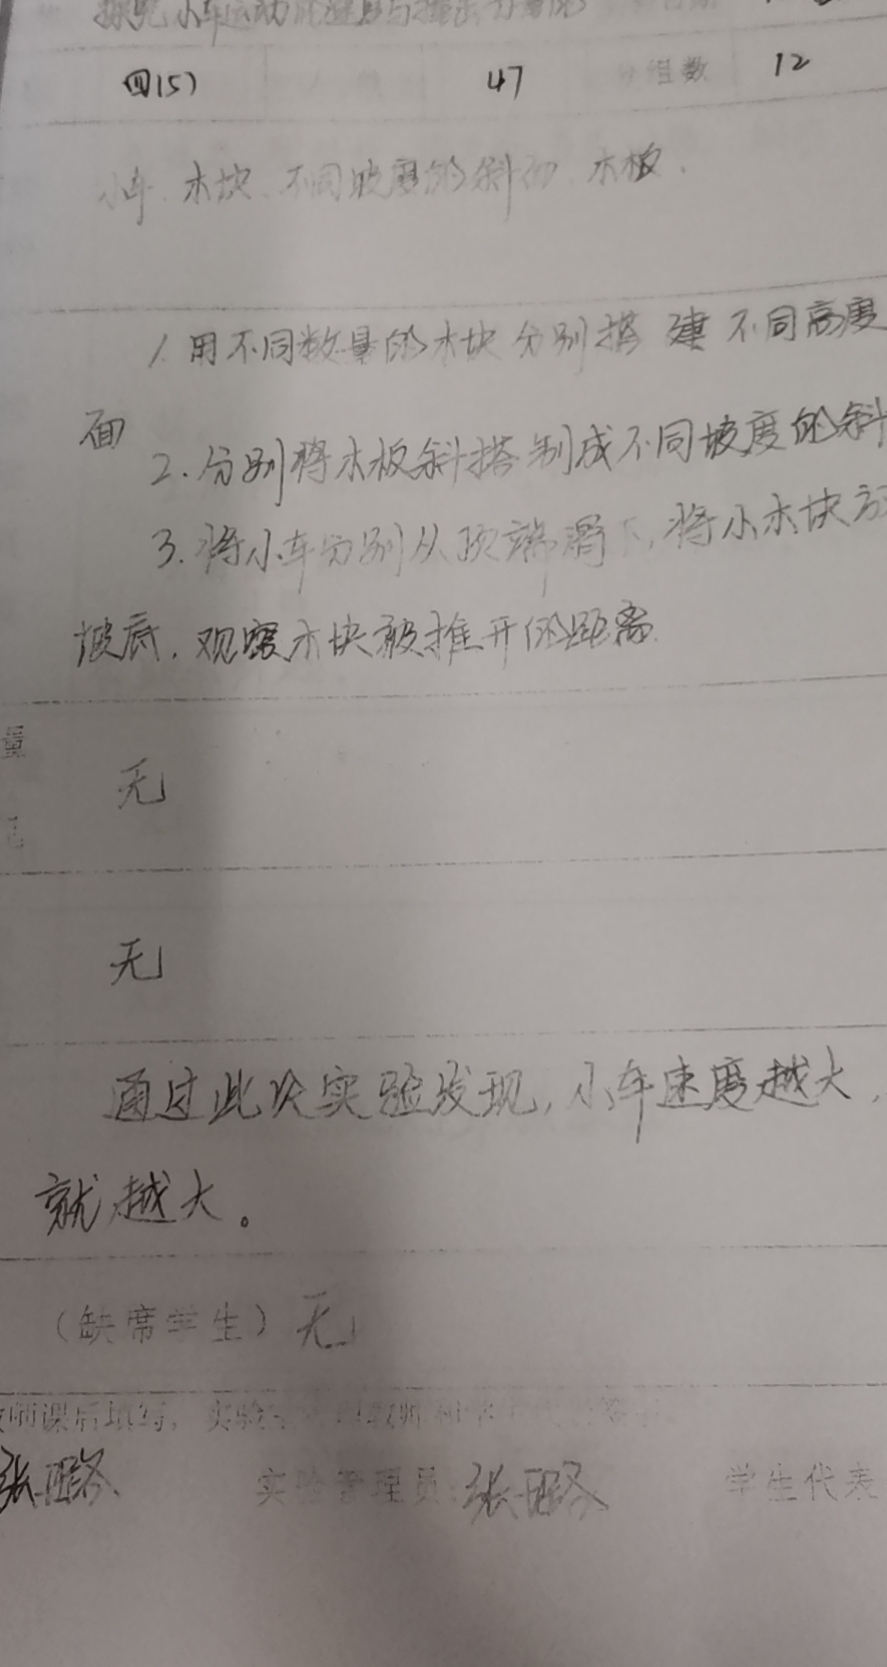 探究小车运动的速度与撞击力
四(5) 47 组数 12
小车、木块、不同坡度的斜面、木板.
1.用不同数量的木块分别搭建不同高度
2.分别将木板斜搭制成不同坡度的斜
面
3.将小车分别从顶端滑下,将小木块放
坡底,观察木块被推开的距离.
量
无
无
通过此次实验发现,小车速度越大,
就越大。
(缺席学生)无
教师课后填写,实验
张 实验管理员:张 学生代表